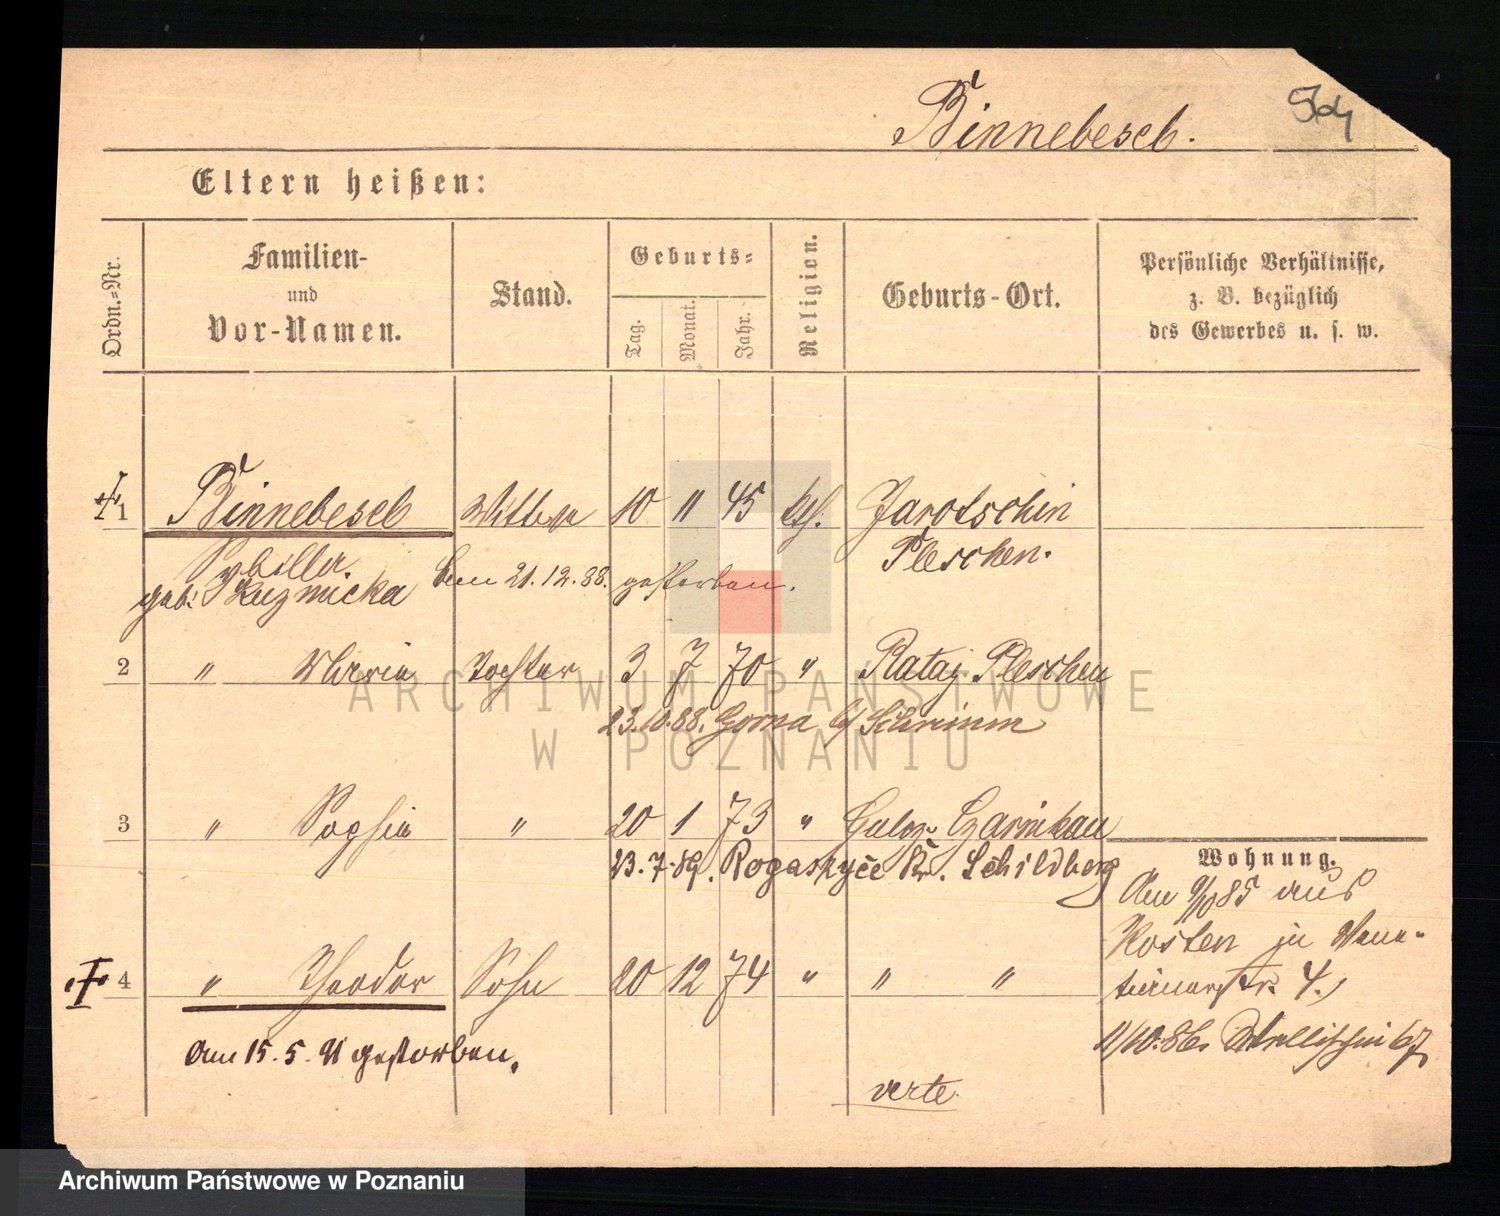 Binnebeseb.
Eltern heißen:
Ordn.=Nr.
Familien-
und
Vor-Namen.
Stand.
Geburts=
Tag.
Monat.
Jahr.
Religion.
Geburts-Ort.
Persönliche Verhältnisse,
z. B. bezüglich
des Gewerbes u. s. w.
1 Binnebeseb Wittwe 10 11 45 kth. Jarotschin
Pleschen.
Sybilla
geb. Kuznicka am 21.12.88. gestorben.
2 " Maria Tochter 3 7 70 " Rataj Pleschen
23.10.88. Gorna b/ Schrimm
3 " Sophia " 20 1 73 " Czarnikau
23.7.89. Rogaszyce Kr. Schildberg
Wohnung.
Am 9/10 85 aus
Kosten in Vene-
tianerstr. 4.,
4 " Theodor Sohn 20 12 74 " " "
11/10.86. Wallischei 67
Am 15. 5. 91 gestorben.
verte.
ARCHIWUM PAŃSTWOWE
W POZNANIU
Archiwum Państwowe w Poznaniu